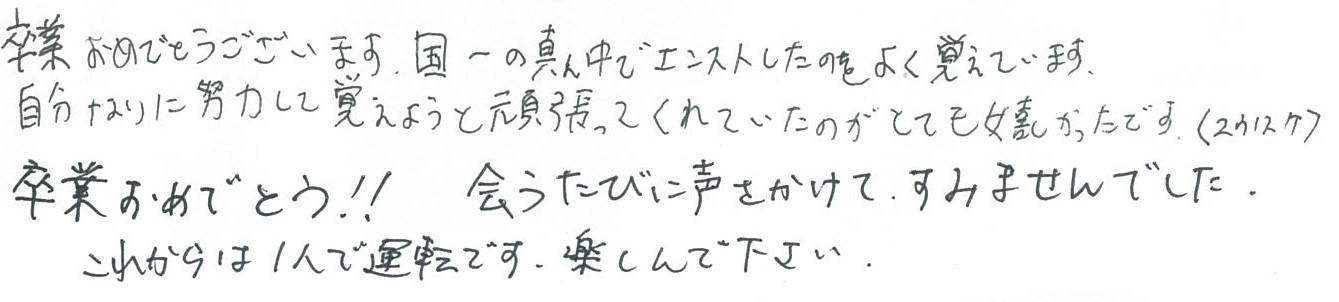 卒業おめでとうございます.国一の真ん中でエンストしたのをよく覚えています.
自分なりに努力して覚えようと頑張ってくれていたのがとても嬉しかったです.
卒業おめでとう!! 会うたびに声をかけて.すみませんでした.
これからは1人で運転です.楽しんで下さい.